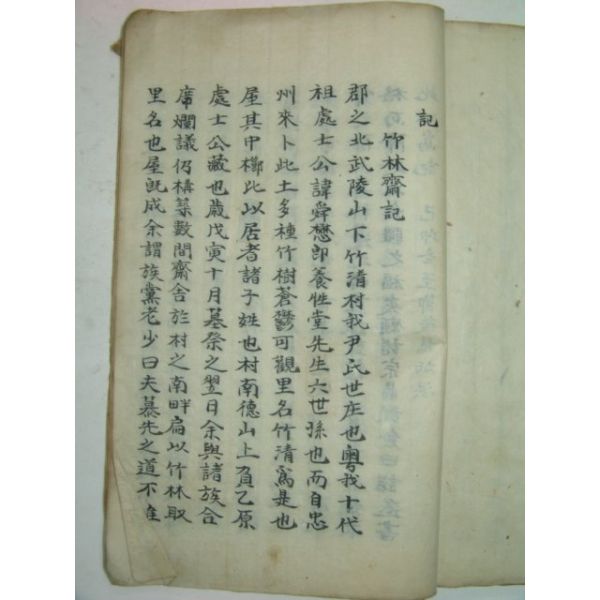 記
竹林齋記
郡之北武陵山下竹清村我尹氏世庄也粤我十代
祖處士公諱舜懋卽養性堂先生六世孫也而自忠
州來卜此土多種竹樹蒼鬱可觀里名竹清寫是也
屋其中櫛比以居者諸子姓也村南德山上負乙原
處士公藏也歲戊寅十月墓祭之翌日余與諸族合
席爛議仍構築數間齋舍於村之南畔扁以竹林取
里名也屋旣成余謂族黨老少曰夫慕先之道不隹